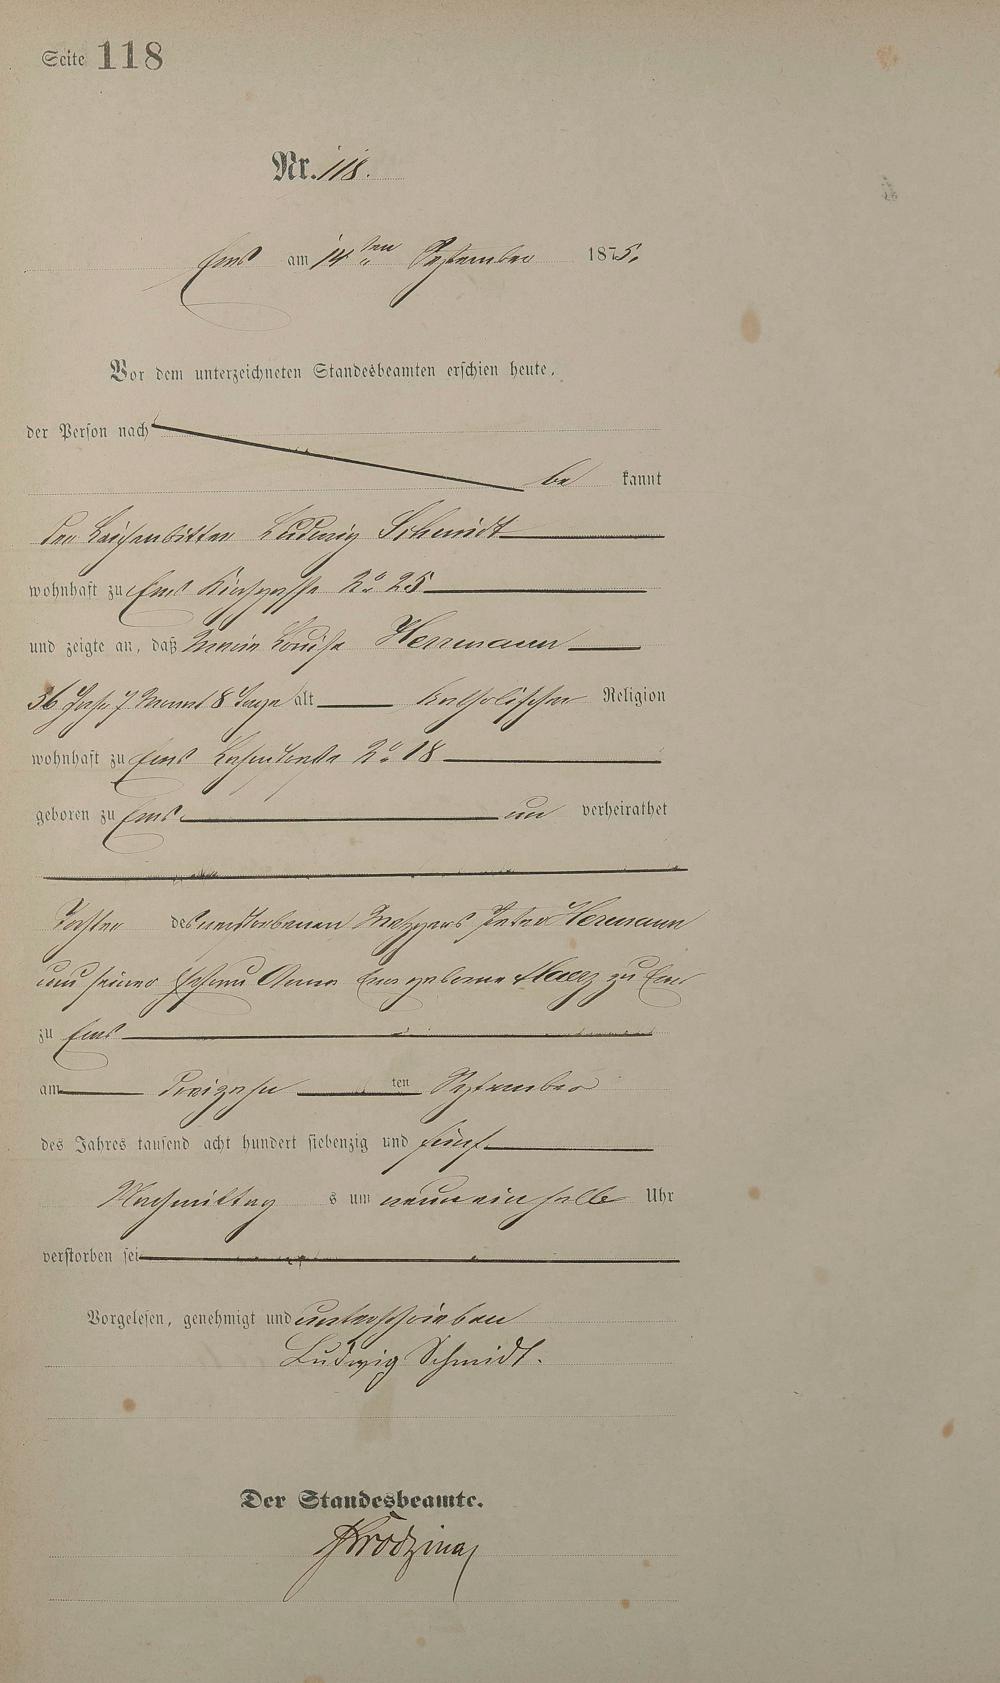 Seite 118
Nr. 118.
Ems am 14ten September 1875.
Vor dem unterzeichneten Standesbeamten erschien heute,
der Person nach
be kannt
der Leichenbitter Ludwig Schmidt
wohnhaft zu Ems Kirchgasse No 25
und zeigte an, daß Marie Louise Herrmann
36 Jahr 7 Monat 8 Tage alt katholischer Religion
wohnhaft zu Ems No 18
geboren zu Ems un verheirathet
Tochter des verstorbenen Metzgers Peter Hermann
und seiner Ehefrau Anna geborene zu Ems
zu Ems
am dreizehn ten September
des Jahres tausend acht hundert siebenzig und fünf
Nachmittag s um neun ein halb Uhr
verstorben sei
Vorgelesen, genehmigt und unterschrieben
Ludwig Schmidt.
Der Standesbeamte.